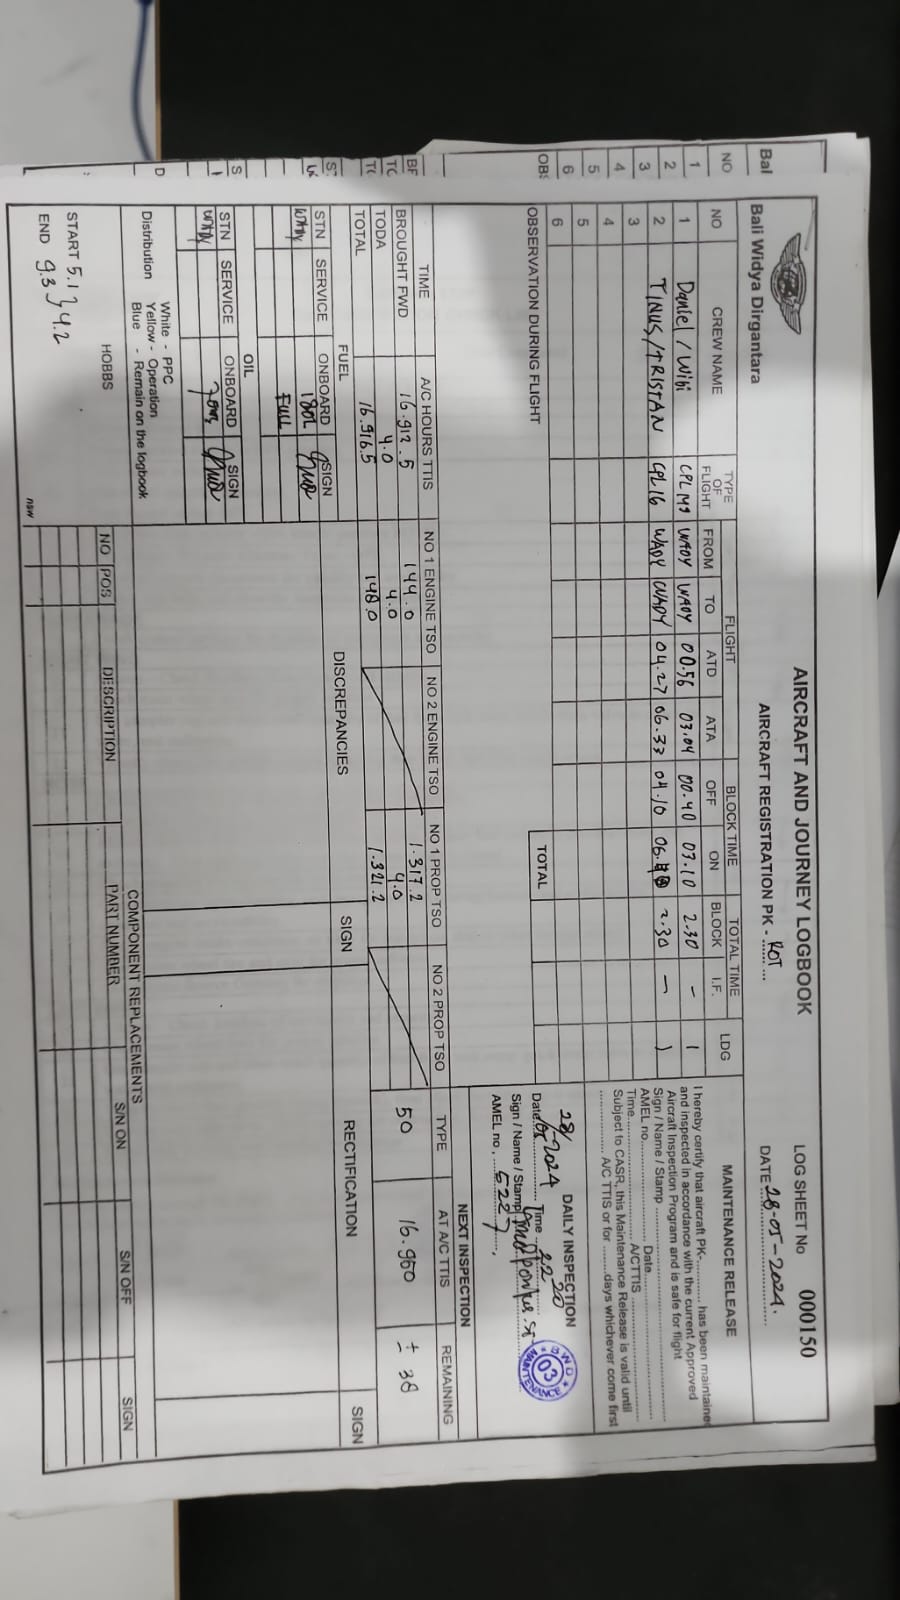 Bali Widya Dirgantara
AIRCRAFT AND JOURNEY LOGBOOK
AIRCRAFT REGISTRATION PK - ROT
LOG SHEET No 000150
DATE 28-05-2024.
NO CREW NAME TYPE OF FLIGHT FLIGHT FROM TO ATD ATA BLOCK TIME OFF ON TOTAL TIME BLOCK I.F. LDG
1 Daniel / Wibi CPL M9 WADY WADY 00.56 03.04 00.40 03.10 2.30 - 1
2 TINUS / TRISTAN CPL 16 WADY WADY 04.27 06.33 04.10 06. 2.30 - 1
3
4
5
6
OBSERVATION DURING FLIGHT
TOTAL
MAINTENANCE RELEASE
I hereby certify that aircraft PK-............ has been maintained
and inspected in accordance with the current Approved
Aircraft Inspection Program and is safe for flight
Sign / Name / Stamp
AMEL no. Date
Time A/C TTIS
Subject to CASR, this Maintenance Release is valid until
A/C TTIS or for ........ days whichever come first
DAILY INSPECTION
Date 28/05-2024 Time 22 20
Sign / Name / Stamp
AMEL no. 5227
BWD 03 MAINTENANCE
TIME A/C HOURS TTIS NO 1 ENGINE TSO NO 2 ENGINE TSO NO 1 PROP TSO NO 2 PROP TSO
BROUGHT FWD 16.912.5 144.0 1.317.2
TODA 4.0 4.0 4.0
TOTAL 16.916.5 148.0 1.321.2
NEXT INSPECTION
TYPE AT A/C TTIS REMAINING
50 16.950 ± 38
FUEL
STN SERVICE ONBOARD SIGN
WADY 180L
FULL
OIL
STN SERVICE ONBOARD SIGN
WADY
DISCREPANCIES SIGN RECTIFICATION SIGN
Distribution White - PPC
Yellow - Operation
Blue - Remain on the logbook
HOBBS
START 5.1 } 4.2
END 9.3
COMPONENT REPLACEMENTS
NO POS DESCRIPTION PART NUMBER S/N ON S/N OFF SIGN
Bal
NO
1
2
3
4
5
6